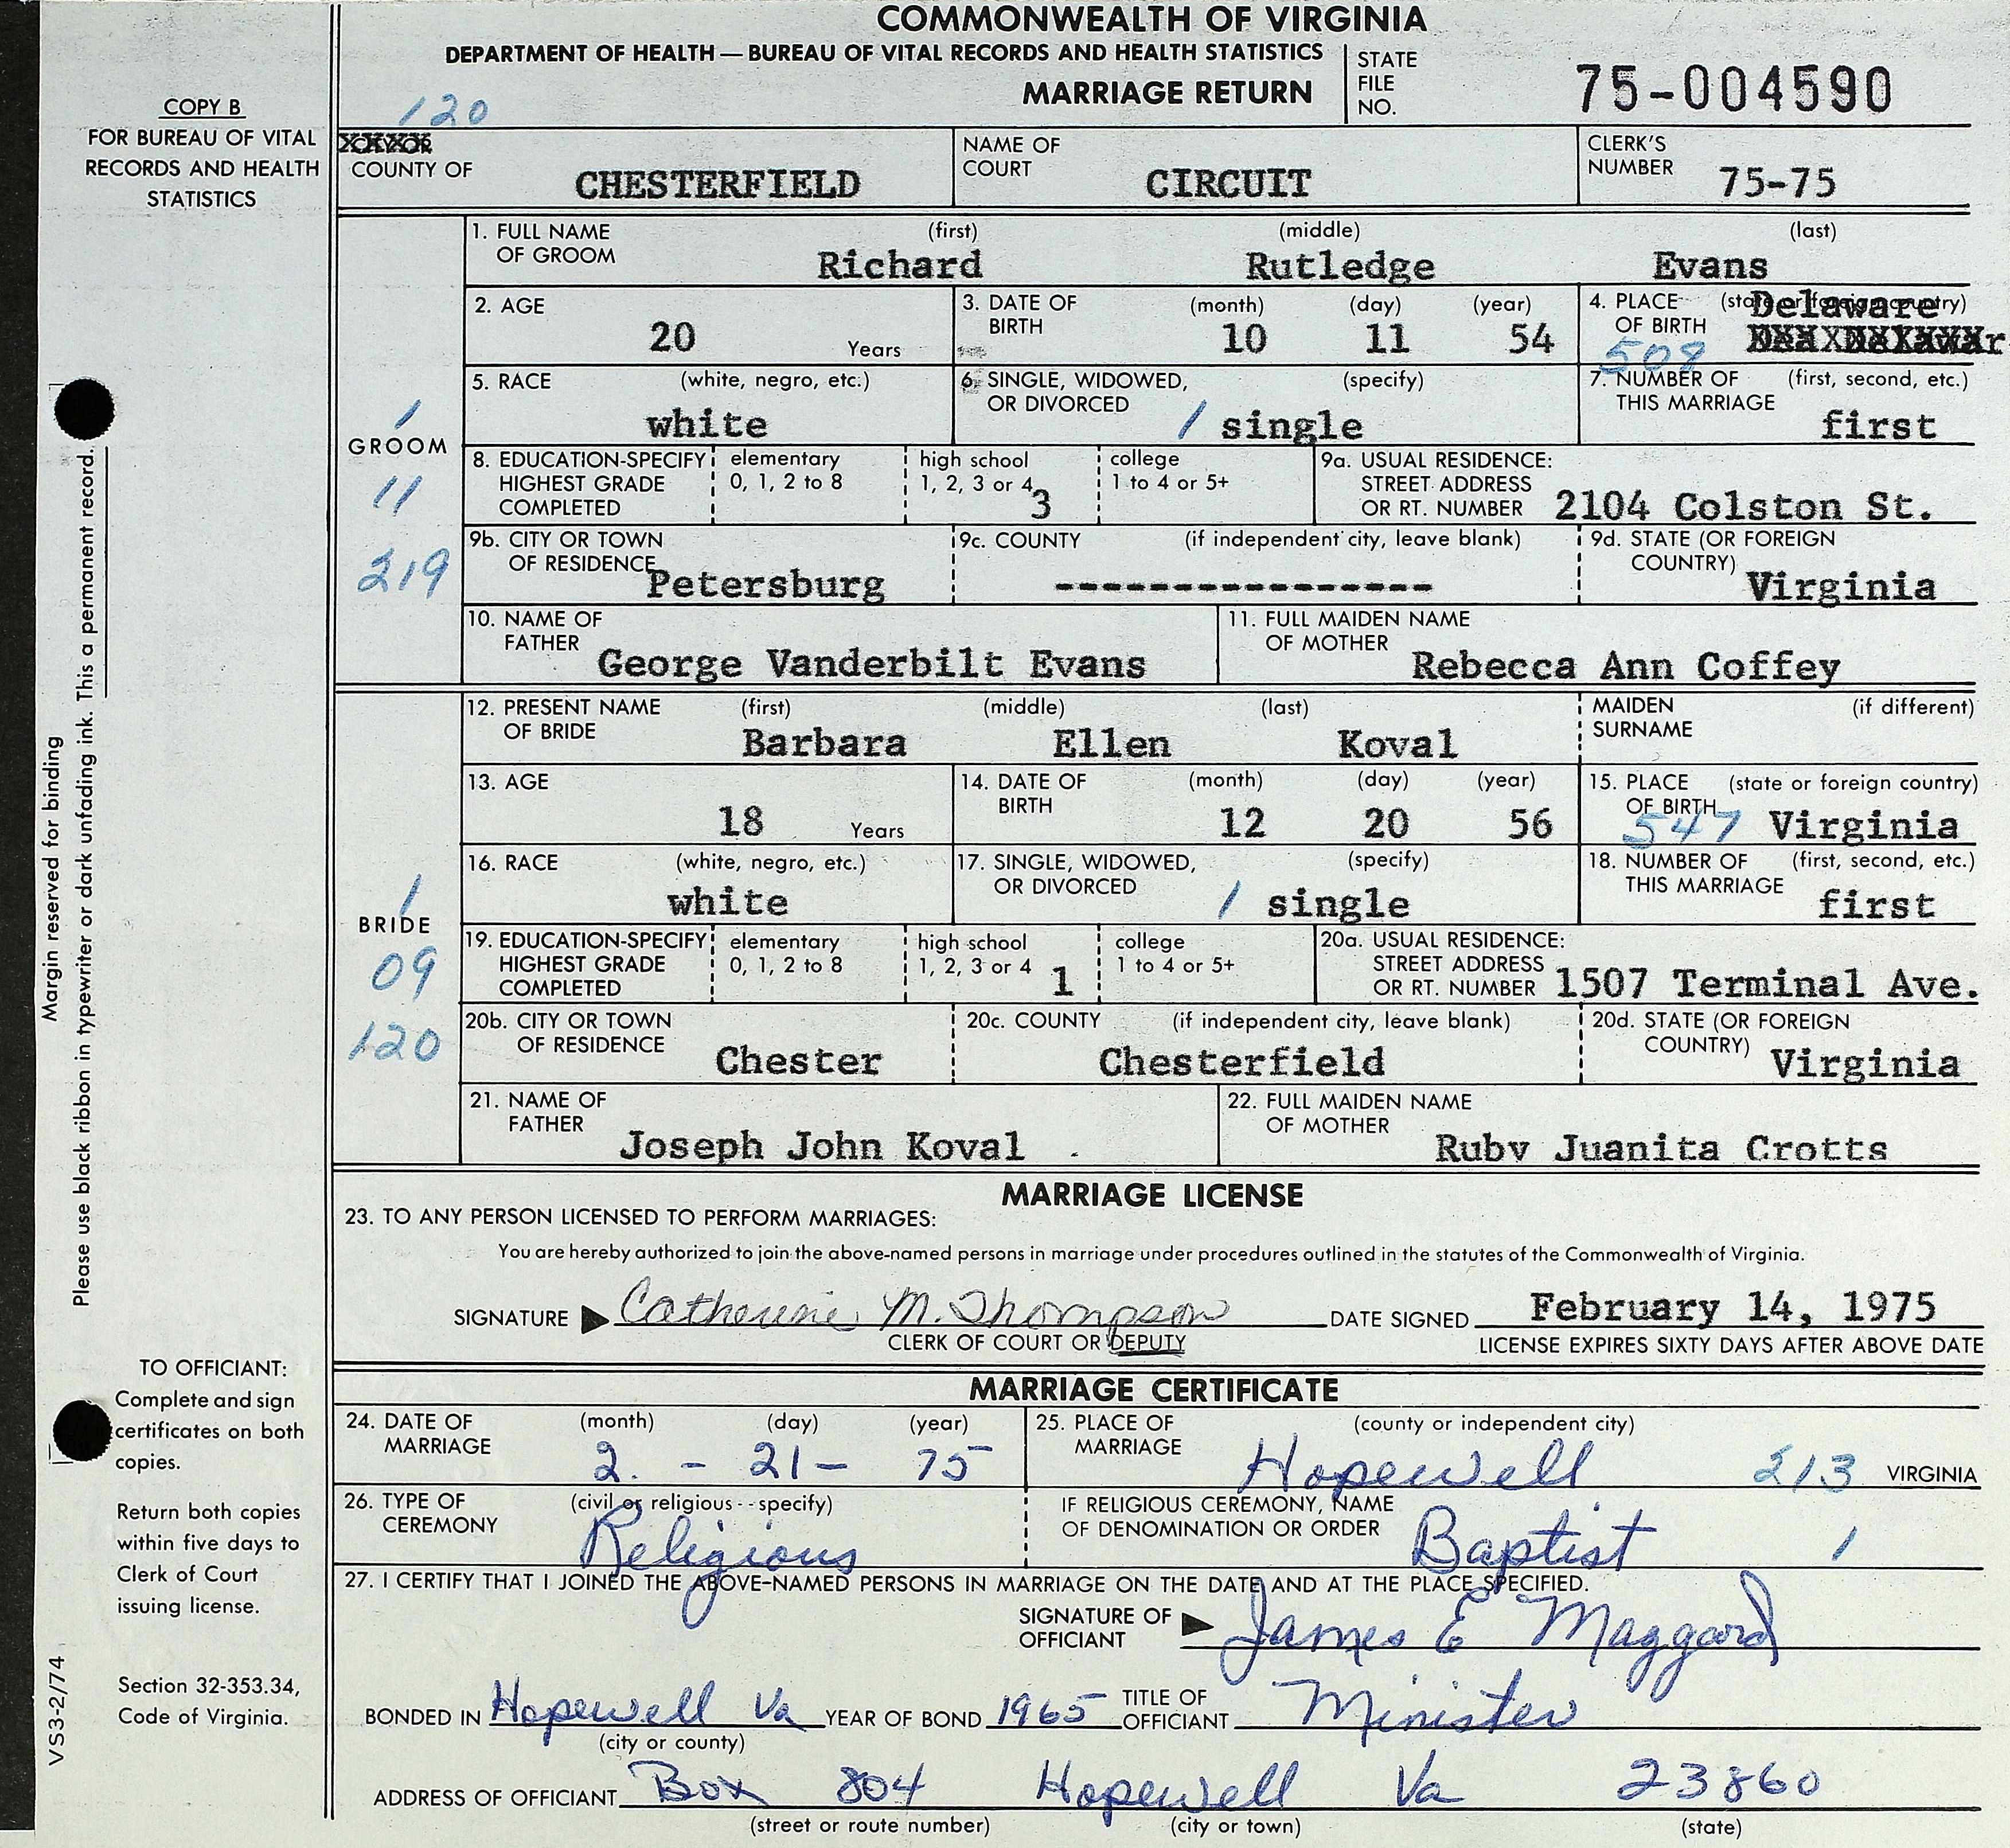 COMMONWEALTH OF VIRGINIA
DEPARTMENT OF HEALTH — BUREAU OF VITAL RECORDS AND HEALTH STATISTICS
MARRIAGE RETURN
STATE FILE NO. 75-004590
COPY B
FOR BUREAU OF VITAL
RECORDS AND HEALTH
STATISTICS
120
COUNTY OF CHESTERFIELD
NAME OF COURT CIRCUIT
CLERK'S NUMBER 75-75
GROOM
1
11
219
1. FULL NAME OF GROOM (first) Richard (middle) Rutledge (last) Evans
2. AGE 20 Years
3. DATE OF BIRTH (month) 10 (day) 11 (year) 54
4. PLACE OF BIRTH (state or foreign country) Delaware
508
5. RACE (white, negro, etc.) white
6. SINGLE, WIDOWED, OR DIVORCED (specify) 1 single
7. NUMBER OF THIS MARRIAGE (first, second, etc.) first
8. EDUCATION-SPECIFY HIGHEST GRADE COMPLETED elementary 0, 1, 2 to 8 high school 1, 2, 3 or 4 3 college 1 to 4 or 5+
9a. USUAL RESIDENCE: STREET ADDRESS OR RT. NUMBER 2104 Colston St.
9b. CITY OR TOWN OF RESIDENCE Petersburg
9c. COUNTY (if independent city, leave blank) ----------------
9d. STATE (OR FOREIGN COUNTRY) Virginia
10. NAME OF FATHER George Vanderbilt Evans
11. FULL MAIDEN NAME OF MOTHER Rebecca Ann Coffey
BRIDE
1
09
120
12. PRESENT NAME OF BRIDE (first) Barbara (middle) Ellen (last) Koval
MAIDEN SURNAME (if different)
13. AGE 18 Years
14. DATE OF BIRTH (month) 12 (day) 20 (year) 56
15. PLACE OF BIRTH (state or foreign country) 547 Virginia
16. RACE (white, negro, etc.) white
17. SINGLE, WIDOWED, OR DIVORCED (specify) 1 single
18. NUMBER OF THIS MARRIAGE (first, second, etc.) first
19. EDUCATION-SPECIFY HIGHEST GRADE COMPLETED elementary 0, 1, 2 to 8 high school 1, 2, 3 or 4 1 college 1 to 4 or 5+
20a. USUAL RESIDENCE: STREET ADDRESS OR RT. NUMBER 1507 Terminal Ave.
20b. CITY OR TOWN OF RESIDENCE Chester
20c. COUNTY (if independent city, leave blank) Chesterfield
20d. STATE (OR FOREIGN COUNTRY) Virginia
21. NAME OF FATHER Joseph John Koval
22. FULL MAIDEN NAME OF MOTHER Ruby Juanita Crotts
MARRIAGE LICENSE
23. TO ANY PERSON LICENSED TO PERFORM MARRIAGES:
You are hereby authorized to join the above-named persons in marriage under procedures outlined in the statutes of the Commonwealth of Virginia.
SIGNATURE Catherine M. Thompson DATE SIGNED February 14, 1975
CLERK OF COURT OR DEPUTY
LICENSE EXPIRES SIXTY DAYS AFTER ABOVE DATE
MARRIAGE CERTIFICATE
24. DATE OF MARRIAGE (month) 2. - (day) 21 - (year) 75
25. PLACE OF MARRIAGE (county or independent city) Hopewell 213 VIRGINIA
26. TYPE OF CEREMONY (civil or religious -- specify) Religious
IF RELIGIOUS CEREMONY, NAME OF DENOMINATION OR ORDER Baptist 1
27. I CERTIFY THAT I JOINED THE ABOVE-NAMED PERSONS IN MARRIAGE ON THE DATE AND AT THE PLACE SPECIFIED.
SIGNATURE OF OFFICIANT James E Maggard
BONDED IN Hopewell Va YEAR OF BOND 1965 TITLE OF OFFICIANT Minister
(city or county)
ADDRESS OF OFFICIANT Box 804 Hopewell Va 23860
(street or route number) (city or town) (state)
Margin reserved for binding
Please use black ribbon in typewriter or dark unfading ink. This a permanent record.
TO OFFICIANT:
Complete and sign
certificates on both
copies.
Return both copies
within five days to
Clerk of Court
issuing license.
Section 32-353.34,
Code of Virginia.
VS3-2/74